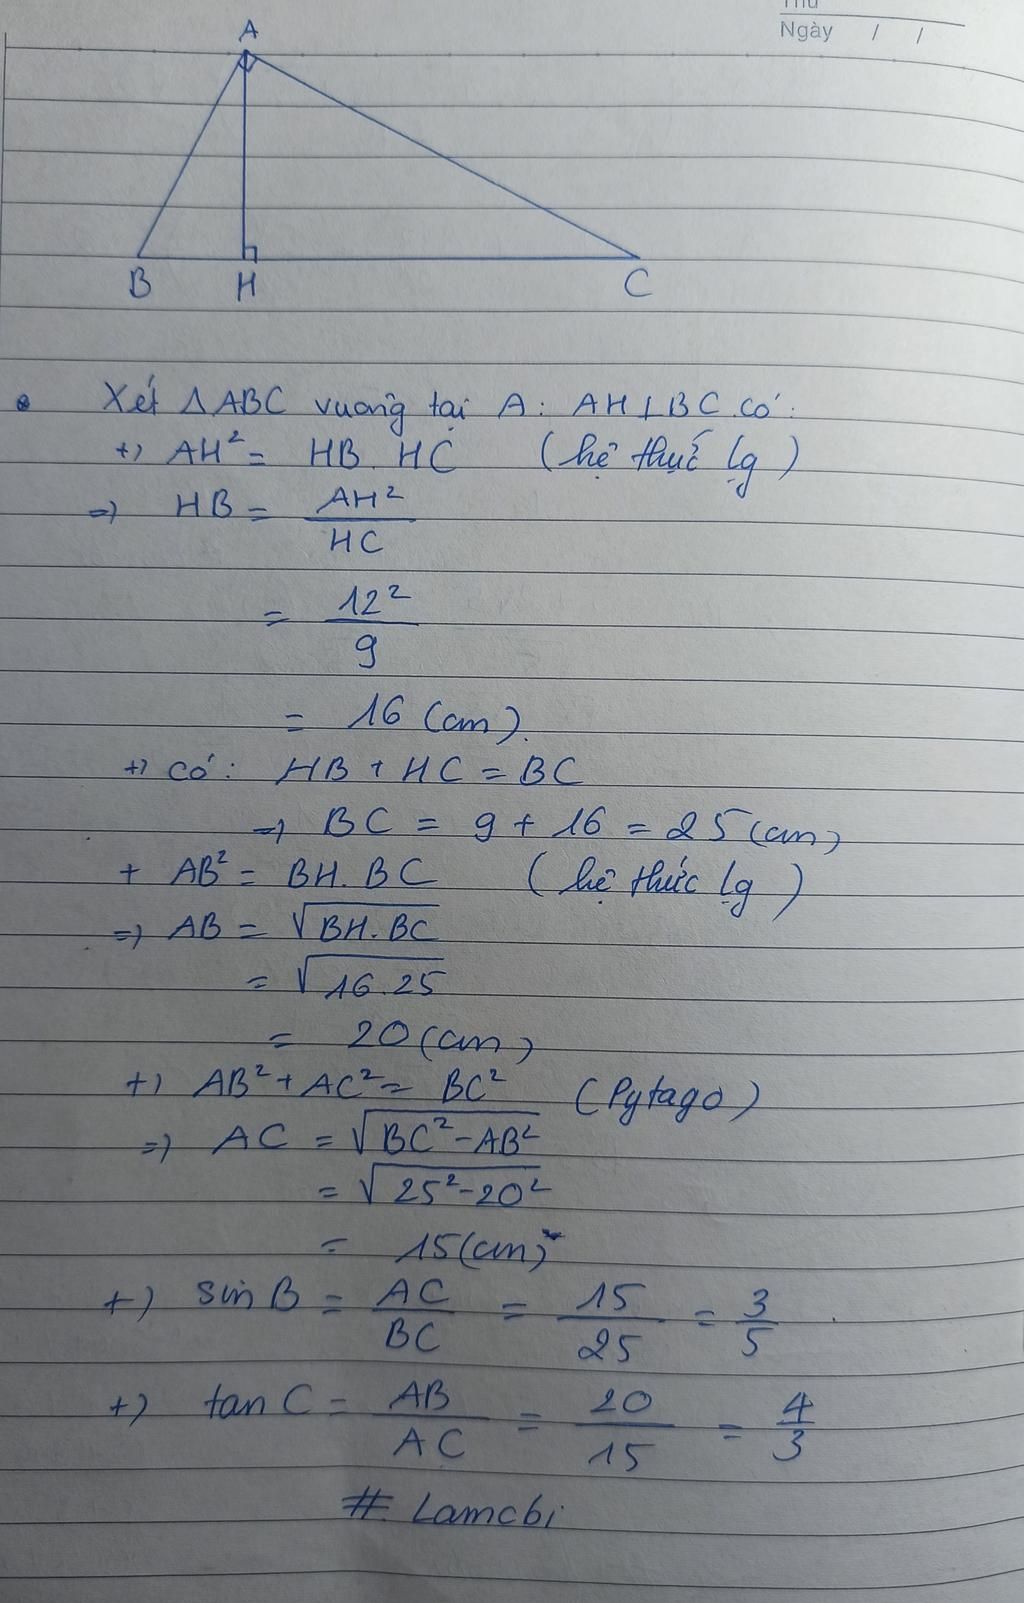 Thứ
Ngày / /
A
B H C
Xét ΔABC vuông tại A: AH⊥BC có:
+) AH² = HB. HC (hệ thức lg)
=) HB = AH²/HC
= 12²/9
= 16 (cm).
+) có: HB + HC = BC
=) BC = 9 + 16 = 25 (cm)
+ AB² = BH. BC (hệ thức lg)
=) AB = √BH.BC
= √16.25
= 20 (cm)
+) AB² + AC² = BC² (Pytago)
=) AC = √BC² - AB²
= √25² - 20²
= 15 (cm)
+) sin B = AC/BC = 15/25 = 3/5
+) tan C = AB/AC = 20/15 = 4/3
# Lamcbi